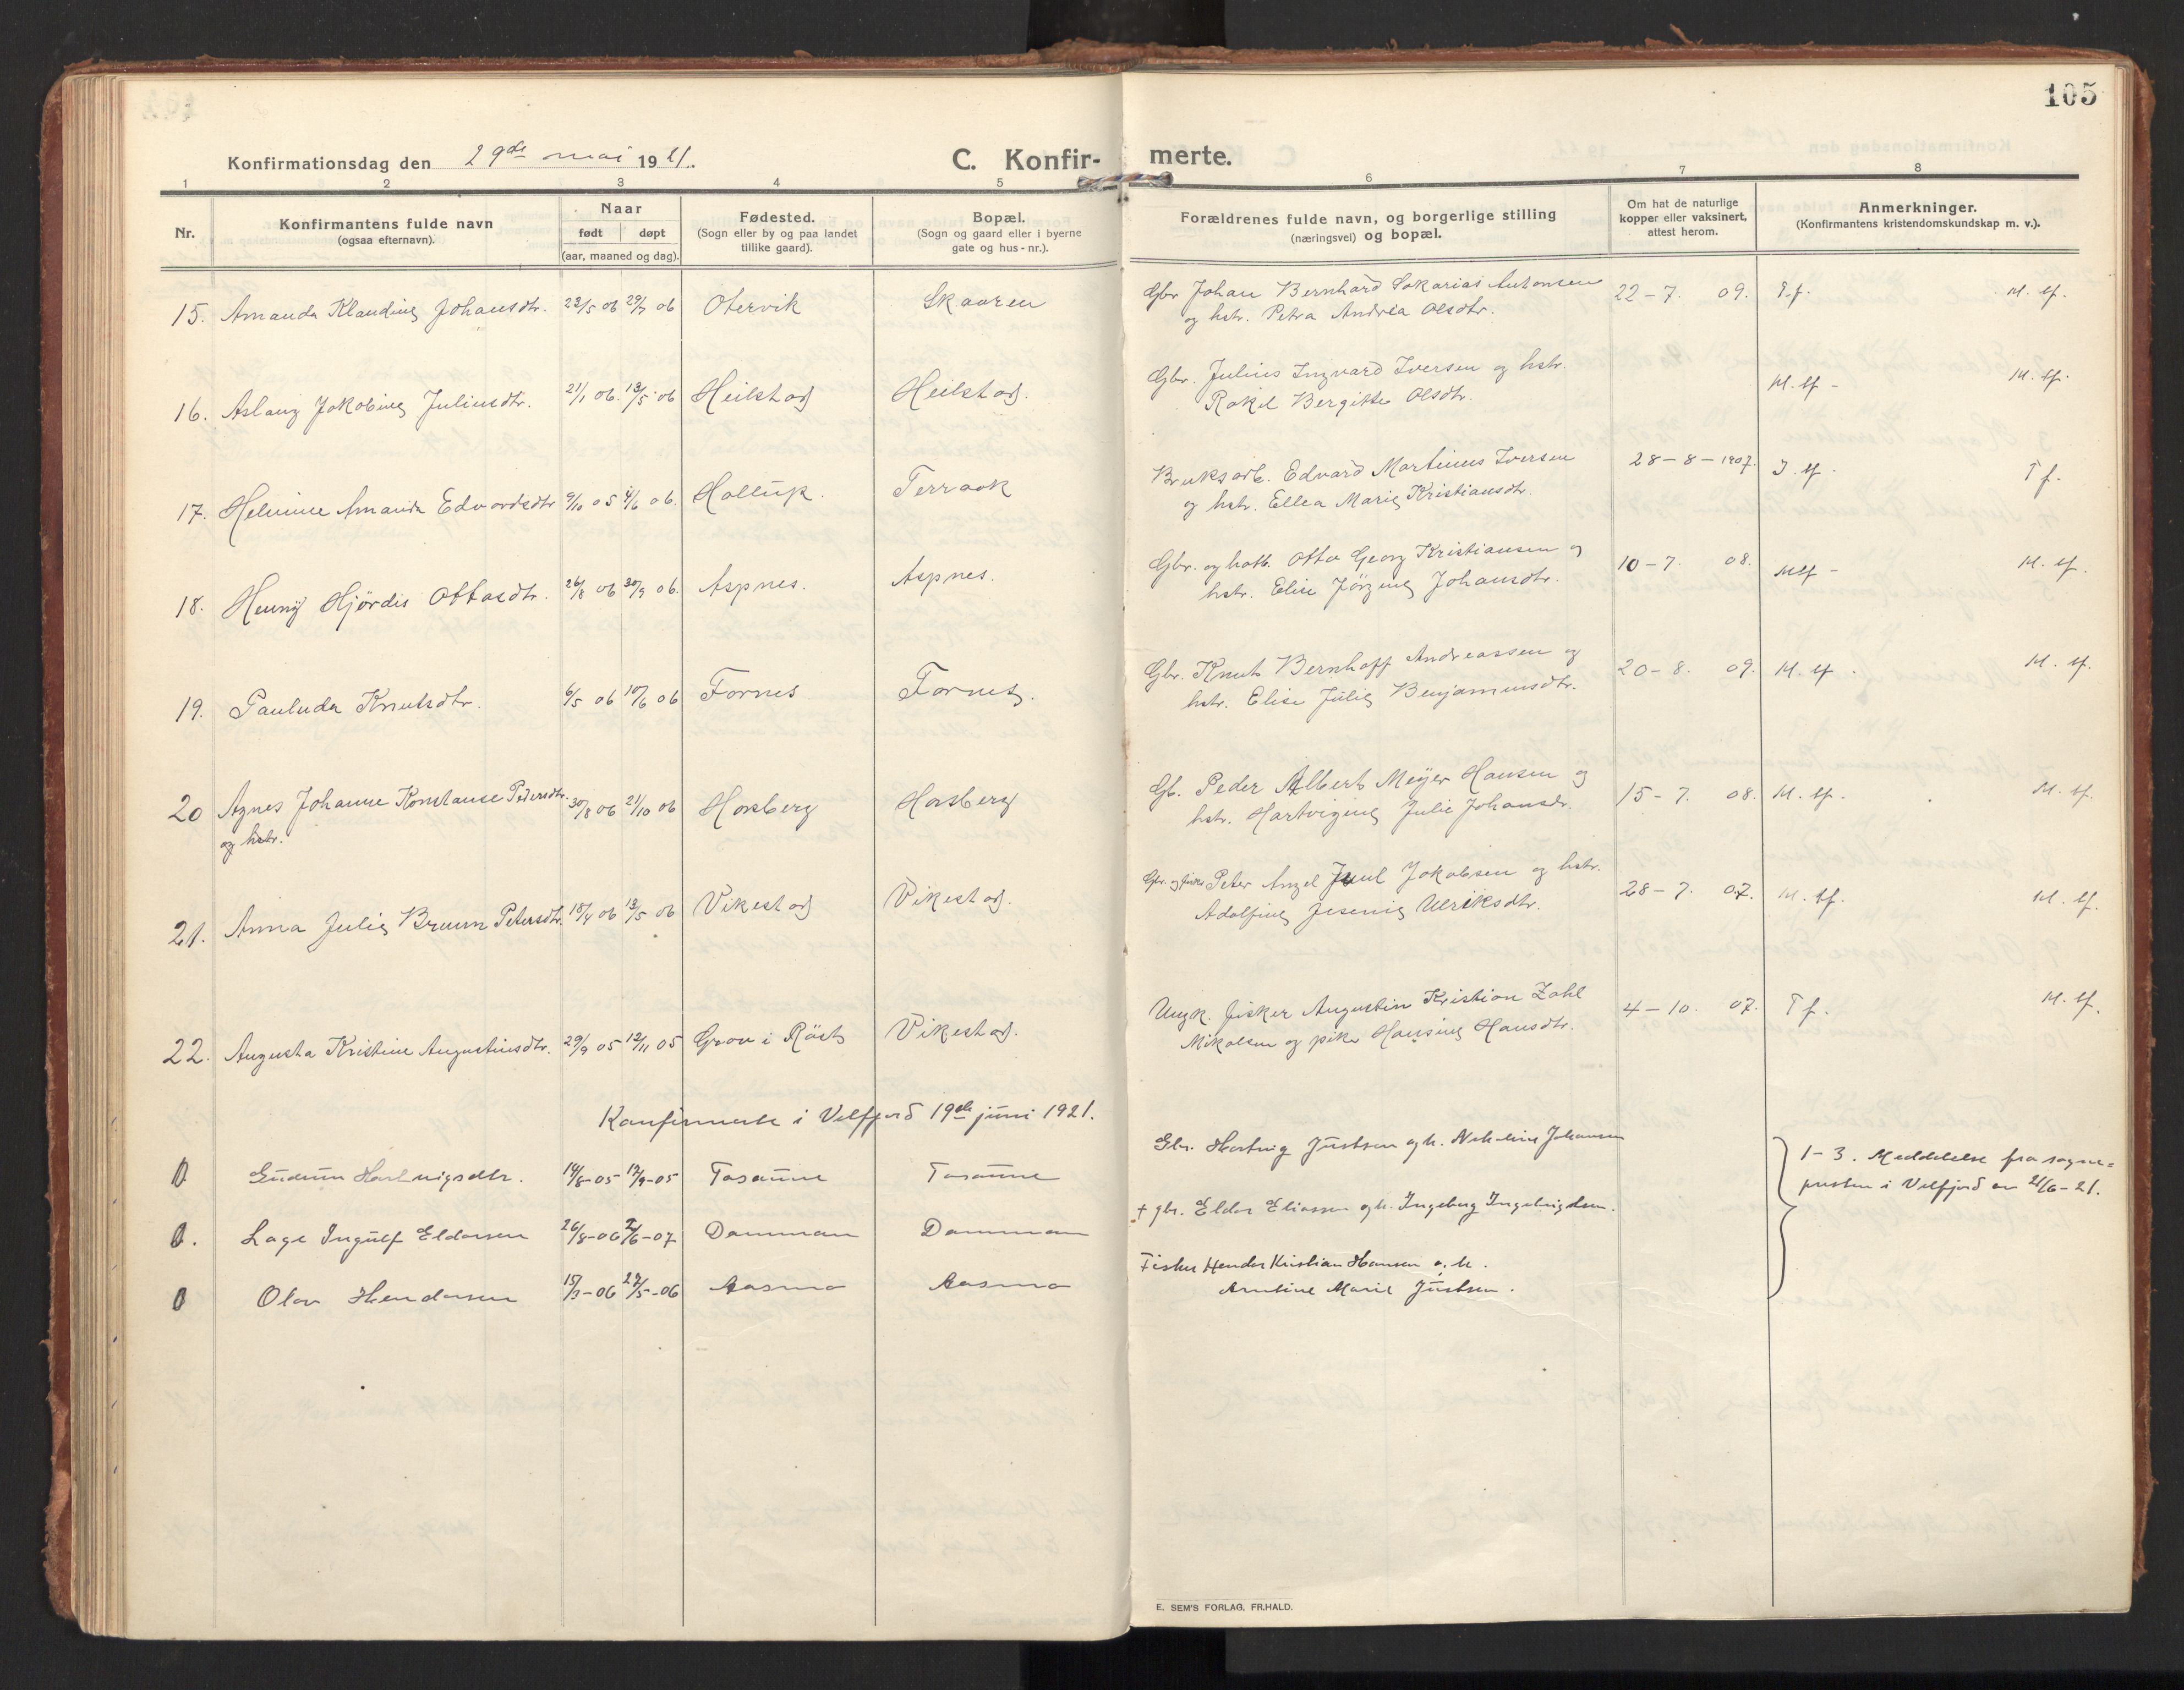 105
Konfirmationsdag den 29de mai 1921. C. Konfir- merte.
1 2 3 4 5 6 7 8
Nr.
Konfirmantens fulde navn
(ogsaa efternavn).
Naar
født døpt
(aar, maaned og dag).
Fødested.
(Sogn eller by og paa landet
tillike gaard).
Bopæl.
(Sogn og gaard eller i byerne
gate og hus-nr.).
Forældrenes fulde navn, og borgerlige stilling
(næringsvei) og bopæl.
Om hat de naturlige
kopper eller vaksinert,
attest herom.
Anmerkninger.
(Konfirmantens kristendomskundskap m. v.).
15. Amanda Klaudine Johansdtr. 23/5 06 29/7 06 Otervik Skauren Gbr. Johan Bernhard Sakarias Antonsen 22-7. 09. T.f. M. tf.
og hstr. Petra Andrea Olsdtr.
16. Aslaug Jakobine Juliusdtr. 21/1 06. 13/5 06 Heilstad Heilstad. Gbr. Julius Ingvard Iversen og hstr. M. tf - M. tf.
Rakel Bergitte Olsdtr.
17. Helmine Amanda Edvardsdtr 9/10 05 4/6 06. Hallup. Terraak Bruksarb. Edvard Martinus Iversen 28-8-1907. T. tf. T f.
og hstr. Ellea Marie Kristiansdtr.
18. Henny Hjørdis Ottasdtr. 26/8 06 30/9 06. Aspnes. Aspnes. Gbr. og hatb. Otto Georg Kristiansen og 10-7. 08. Mtf - M. tf.
hstr. Elise Jørgine Johansdtr.
19. Pauluda Knutsdtr. 6/5 06 10/6 06 Fornes Fornes. Gbr. Knut Bernhoff Andreassen og 20-8. 09. M. tf. M. tf.
hstr. Elise Julie Benjaminsdtr.
20 Agnes Johanne Konstanse Pedersdtr. 30/8 06 21/10 06 Horsberg Horsberg Gb. Peder Albert Meyer Hansen og 15-7. 08. M. tf. M. tf.
og hstr. hstr. Hartvigine Julie Johansdr.
21. Anna Julie Bruun Petersdtr. 18/4 06 13/5 06 Vikestad Vikestad. Gbr. og fisker Peter Angel Juul Jakobsen og hstr. 28-7. 07. M. tf. M. tf.
Adolfine Jesenie Ulriksdtr.
22. Augusta Kristine Augustinsdtr. 29/9 05 12/11 05 Grav i Røst Vikestad. Ungk. fisker Augustin Kristian Zahl 4-10. 07. T f. M. tf.
Mikalsen og pike Hansine Hansdtr.
Konfirmerte i Velfjord 19de juni 1921.
Gudrun Hartvigsdtr. 14/8-05 17/9-05 Tosaune Tosaune Gbr. Hartvig Justsen og h. Nikoline Johansen 1-3. Meddelelse fra sogne=
presten i Velfjord av 21/6-21.
Lage Ingulf Eldorsen 26/8-06 2/6-07 Damman Damman + gbr. Eldor Eliassen og h. Ingeborg Ingebrigtsen.
Olav Hendorsen 15/3-06 27/5-06 Aasmo Aasmo Fisker Hendor Kristian Hansen o. h.
Arntine Marie Justsen.
E. SEM'S FORLAG, FR.HALD.